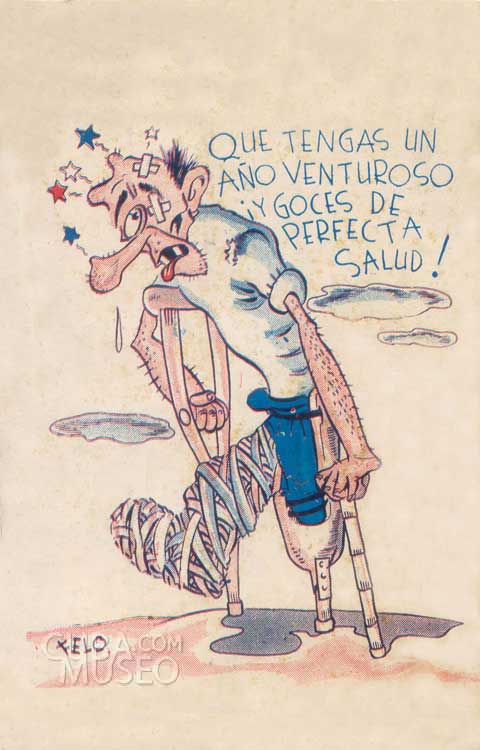 QUE TENGAS UN
AÑO VENTUROSO
¡Y GOCES DE
PERFECTA
SALUD!
XELO.
.COM
MUSEO